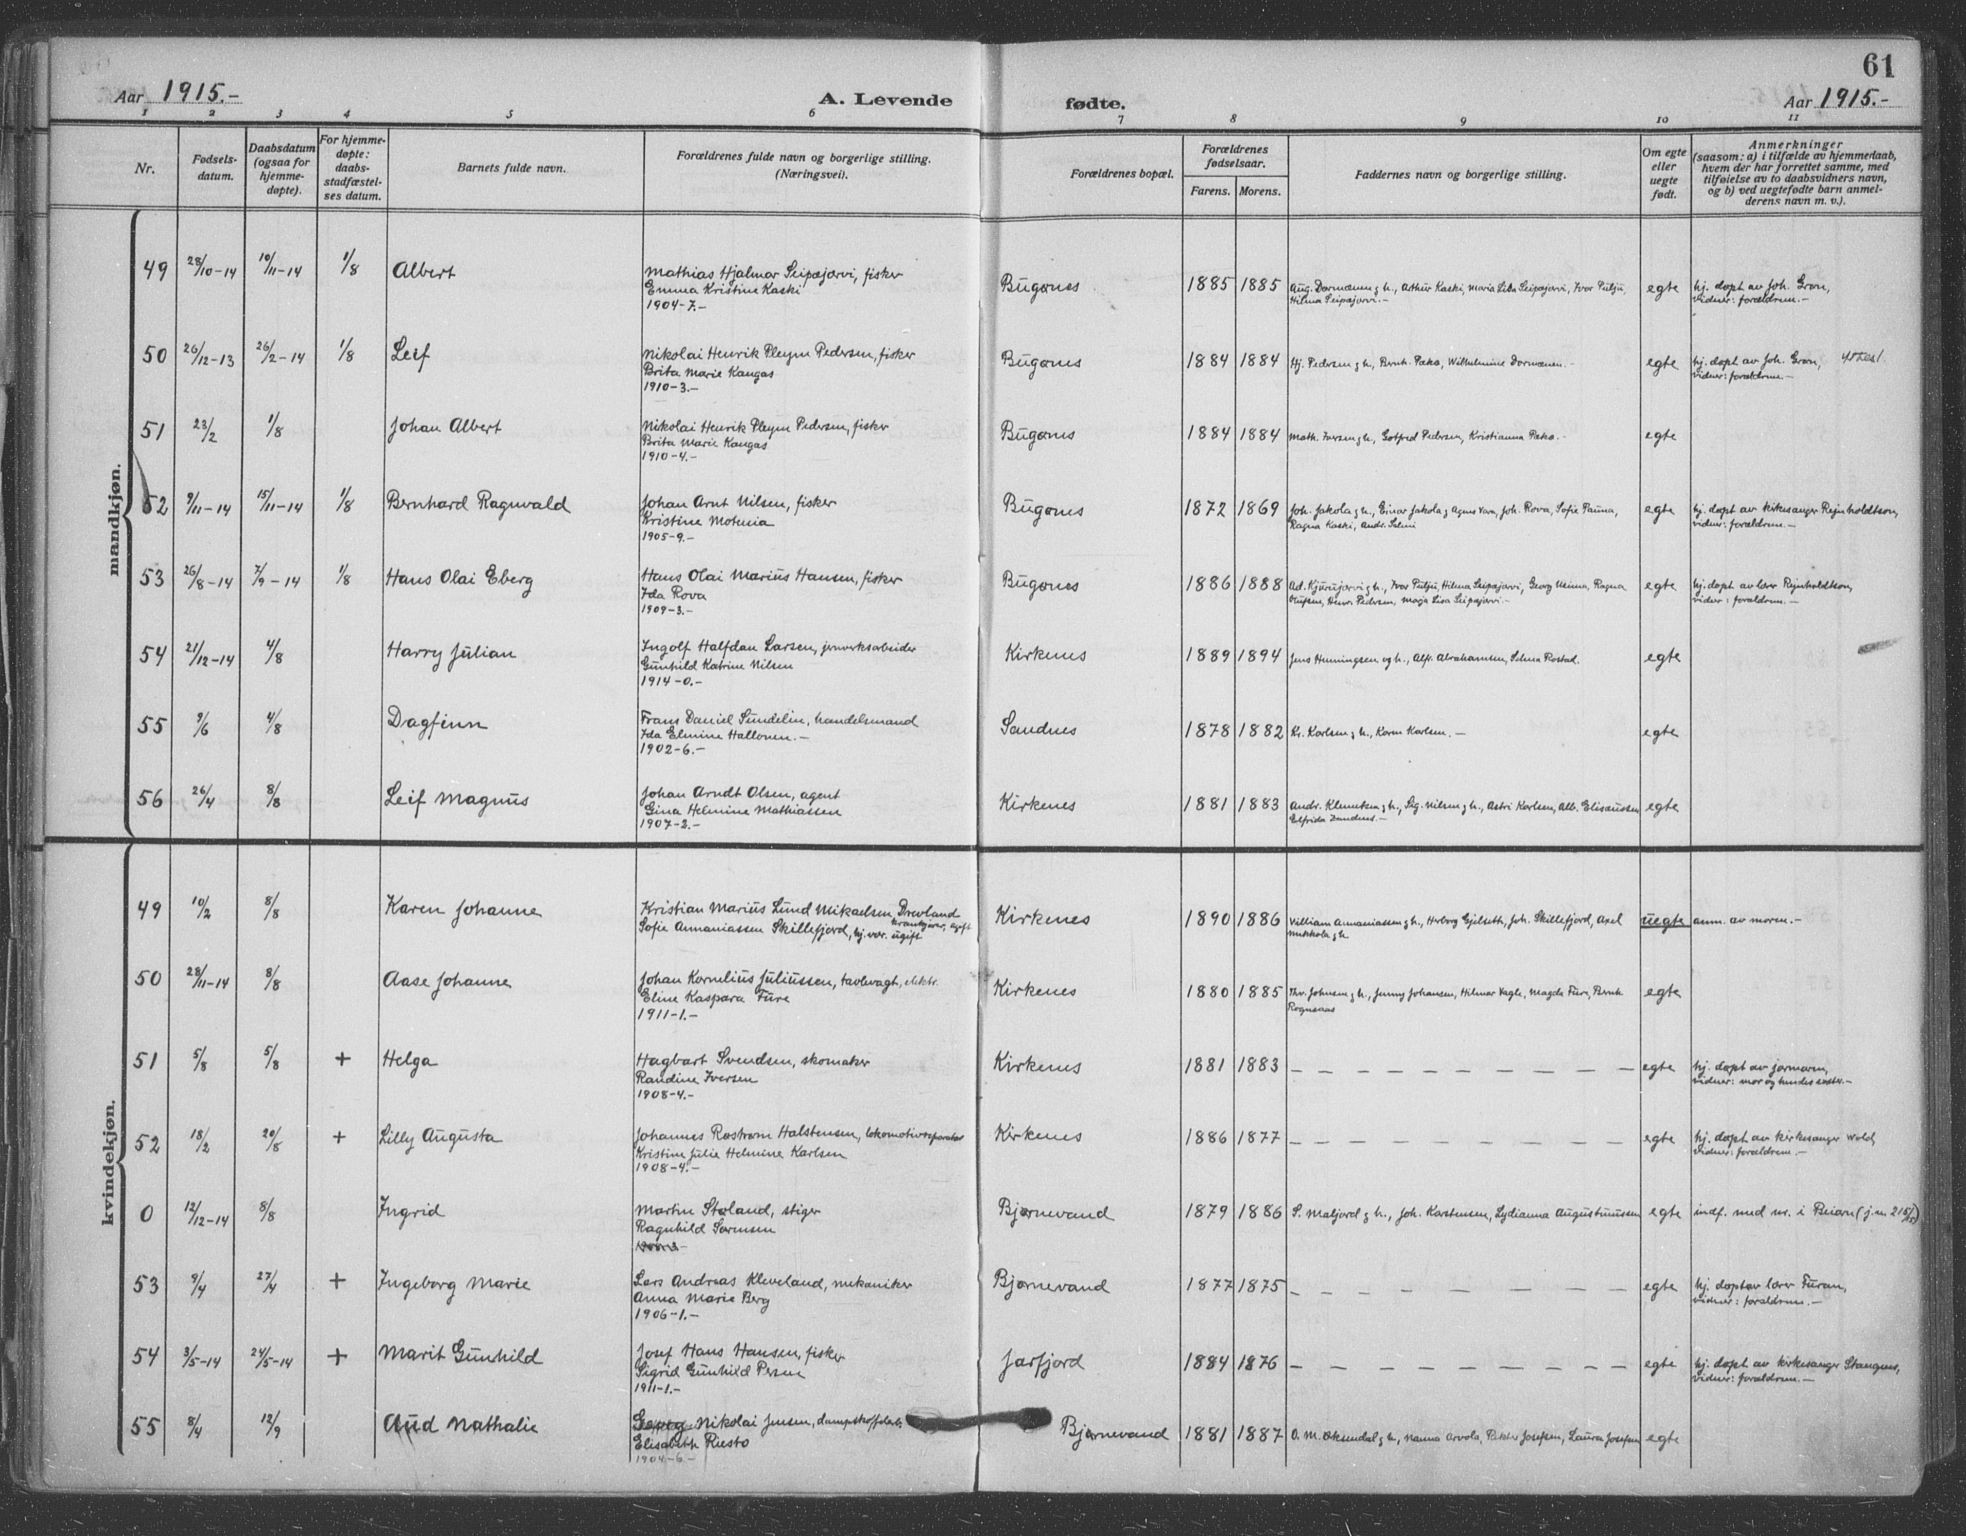 61
Aar 1915.-
A. Levende fødte.
Aar 1915.-
1 2 3 4 5 6 7 8 9 10 11
Nr.
Fødsels-
datum.
Daabsdatum
(ogsaa for
hjemme-
døpte).
For hjemme-
døpte:
daabs-
stadfæstel-
ses datum.
Barnets fulde navn.
Forældrenes fulde navn og borgerlige stilling.
(Næringsvei).
Forældrenes bopæl.
Forældrenes
fødselsaar.
Farens. Morens.
Faddernes navn og borgerlige stilling.
Om egte
eller
uegte
født.
Anmerkninger
(saasom: a) i tilfælde av hjemmedaab,
hvem der har forrettet samme, med
tilføielse av to daabsvidners navn,
og b) ved uegtefødte barn anmel-
derens navn m. v.).
mandkjøn.
49 28/10-14 10/11-14 1/8 Albert
Mathias Hjalmar Seipæjærvi, fisker
Emma Kristine Kaski
1904-7.-
Bugønes 1885 1885
Aug. Dormænen g h., Arthur Kaski, Maria Lisa Seipajærvi, Ivar Pulju,
Hilma Seipajærvi.-
egte
hj. døpt av Joh. Grøn,
vidner: forældrene.-
50 26/12-13 26/2-14 1/8 Leif
Nikolai Henrik Pleym Pedersen, fisker
Brita Marie Kangas
1910-3.-
Bugønes 1884 1884
Hj. Pedersen g h., Bernh. Pakø, Wilhelmine Dormænen.-
egte
hj. døpt av Joh. Grøn,
vidner: forældrene.-
51 23/2 1/8 Johan Albert
Nikolai Henrik Pleym Pedersen, fisker
Brita Marie Kangas
1910-4.-
Bugønes 1884 1884
Math. Iversen g h., Gotfred Pedersen, Kristianna Pakø.-
egte
52 9/11-14 15/11-14 1/8 Bernhard Ragnvald
Johan Arnt Nilsen, fisker
Kristine Motinia
1905-9.-
Bugønes 1872 1869
Joh. Jakola g h., Einar Jakola g Agnes Vara, Joh. Rova, Sofie Pauna,
Ragna Kaski, Andr. Salmi
egte
hj. døpt av kirkesanger Rejnholdtsen,
vidner: forældrene.-
53 26/8-14 7/9-14 1/8 Hans Olai Eberg
Hans Olai Marius Hansen, fisker
Ida Rova
1909-3.-
Bugønes 1886 1888
Ad. Kjurujærvi g h., Ivar Pulju, Hilma Seipajærvi, Georg Ranna, Ragna
Olufsen, Henr. Pedersen, Maja Lisa Seipajærvi.-
egte
hj. døpt av lærer Rejnholdtsen,
vidner: forældrene.-
54 21/12-14 4/8 Harry Julian
Ingolf Halfdan Larsen, jernverksarbeider
Gunhild Katrine Nilsen
1914-0.-
Kirkenes 1889 1894
Jens Henningsen og h., Alf. Abrahamsen, Selma Rostad.
egte
55 9/6 4/8 Dagfinn
Frans Daniel Sundelin, handelsmand
Ida Elmine Hallonen.-
1902-6.-
Sandnes 1878 1882
Kr. Karlsen g h., Karen Karlsen.-
egte
56 26/4 8/8 Leif Magnus
Johan Arndt Olsen, agent
Gina Helmine Mathiassen
1907-2.-
Kirkenes 1881 1883
Andr. Klemetsen g h., Sig. Nilsen g h., Astri Karlsen, Alb. Eliseussen
Elfrida Sandnes.-
egte
kvindekjøn.
49 10/2 8/8 Karen Johanne
Kristian Marius Lund Mikaelsen, Drevland
krankjører, ugift
Sofie Annaniassen Skillefjord, hj. vær. ugift
Kirkenes 1890 1886
Villiam Annaniassen g h., Herborg Gjelseth, Joh. Skillefjord, Axel
Mikkola g h.
uegte
anm. av moren.-
50 28/11-14 8/8 Aase Johanne
Johan Kornelius Juliussen, tavlevagt, elektr.
Eline Kaspara Fure
1911-1.-
Kirkenes 1880 1885
Thv. Johnsen g h., Jenny Johansen, Hilmar Vagle, Magda Fure, Bernh.
Rognsaas
egte
51 5/8 5/8 + Helga
Hagbart Svendsen, skomaker
Randine Iversen
1908-4.-
Kirkenes 1881 1883
- - - - - - - - -
egte
hj. døpt av jormoren,
vidner: mor og hendes søster.-
52 18/2 20/8 + Lilly Augusta
Johannes Røstrøm Halstensen, lokomotivreparatør
Kristine Julie Helmine Karlsen
1908-4.-
Kirkenes 1886 1877
- - - - - - - - -
egte
hj. døpt av kirkesanger Wold,
vidner: forældrene.-
0 12/12-14 8/8 Ingrid
Martin Støland, stiger
Ragnhild Sørensen
Bjørnevand 1879 1886
S. Maljord g h., Joh. Karstensen, Lydianna Augustinussen
egte
indf. med nr. i Beiarn (j.nr. 215/15)
53 9/4 27/4 + Ingeborg Marie
Lars Andreas Kleveland, mekaniker
Anna Marie Berg
1906-1.-
Bjørnevand 1877 1875
- - - - - - - - -
egte
hj. døpt av lærer Furan,
vidner: forældrene.-
54 3/5-14 24/5-14 + Marit Gunhild
Josef Hans Hansen, fisker
Sigrid Gunhild Persen
1911-1.-
Jarfjord 1884 1876
- - - - - - - - -
egte
hj. døpt av kirkesanger Stangnes,
vidner: forældrene.-
55 8/4 12/9 Aud Nathalie
Georg Nikolai Jensen,
Elisabeth Riesto
1904-6.-
Bjørnevand 1881 1887
O. M. Øksendal g h., Nanna Arvola, Petter Josefsen, Laura Josefsen
egte